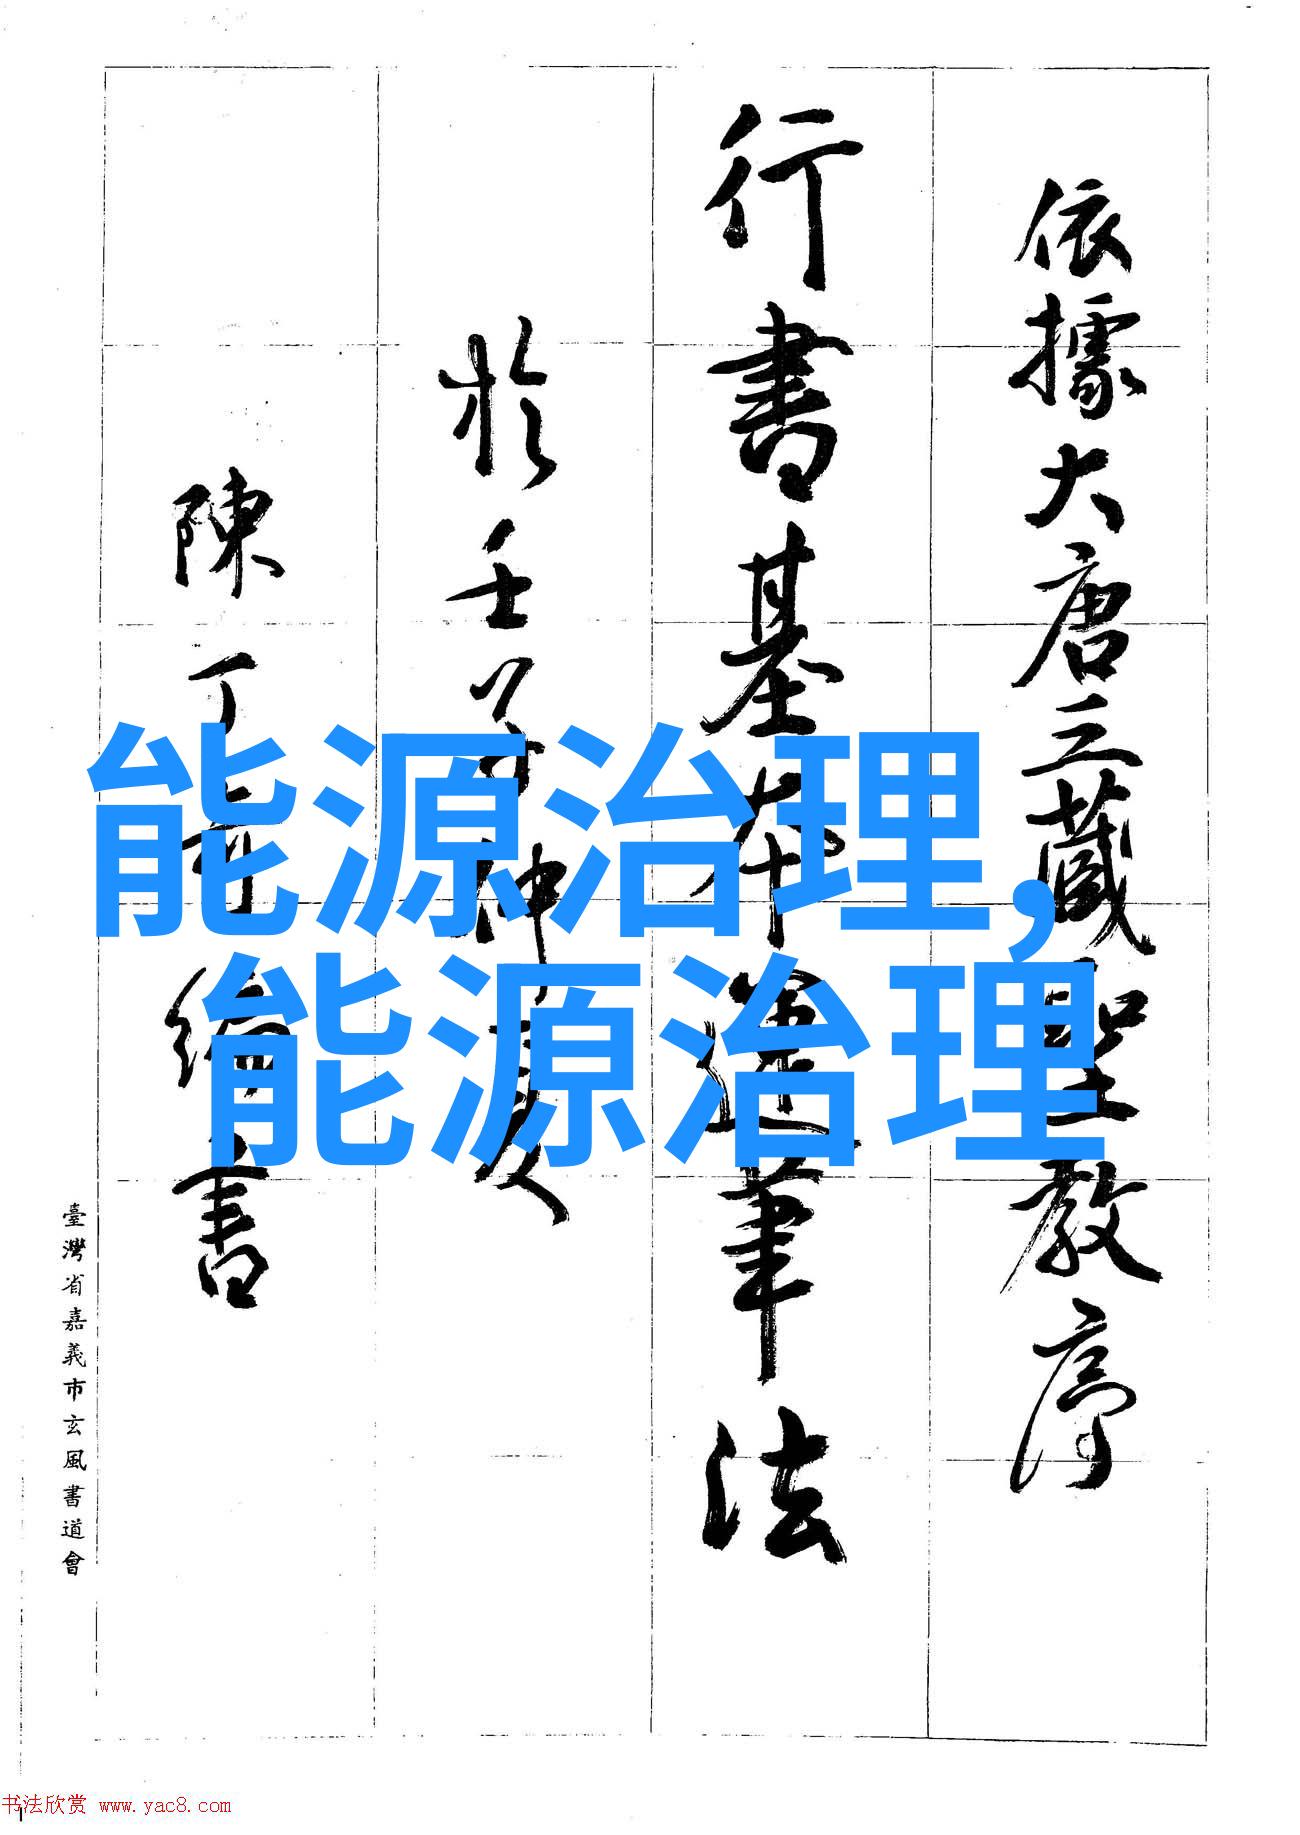 依據大唐三藏聖教序
行書基本運筆法
於壬子仲夏
陳丁奇編書
臺灣省嘉義市玄風書道會
能源治理,
能源治理
书法欣赏 www.yac8.com
1